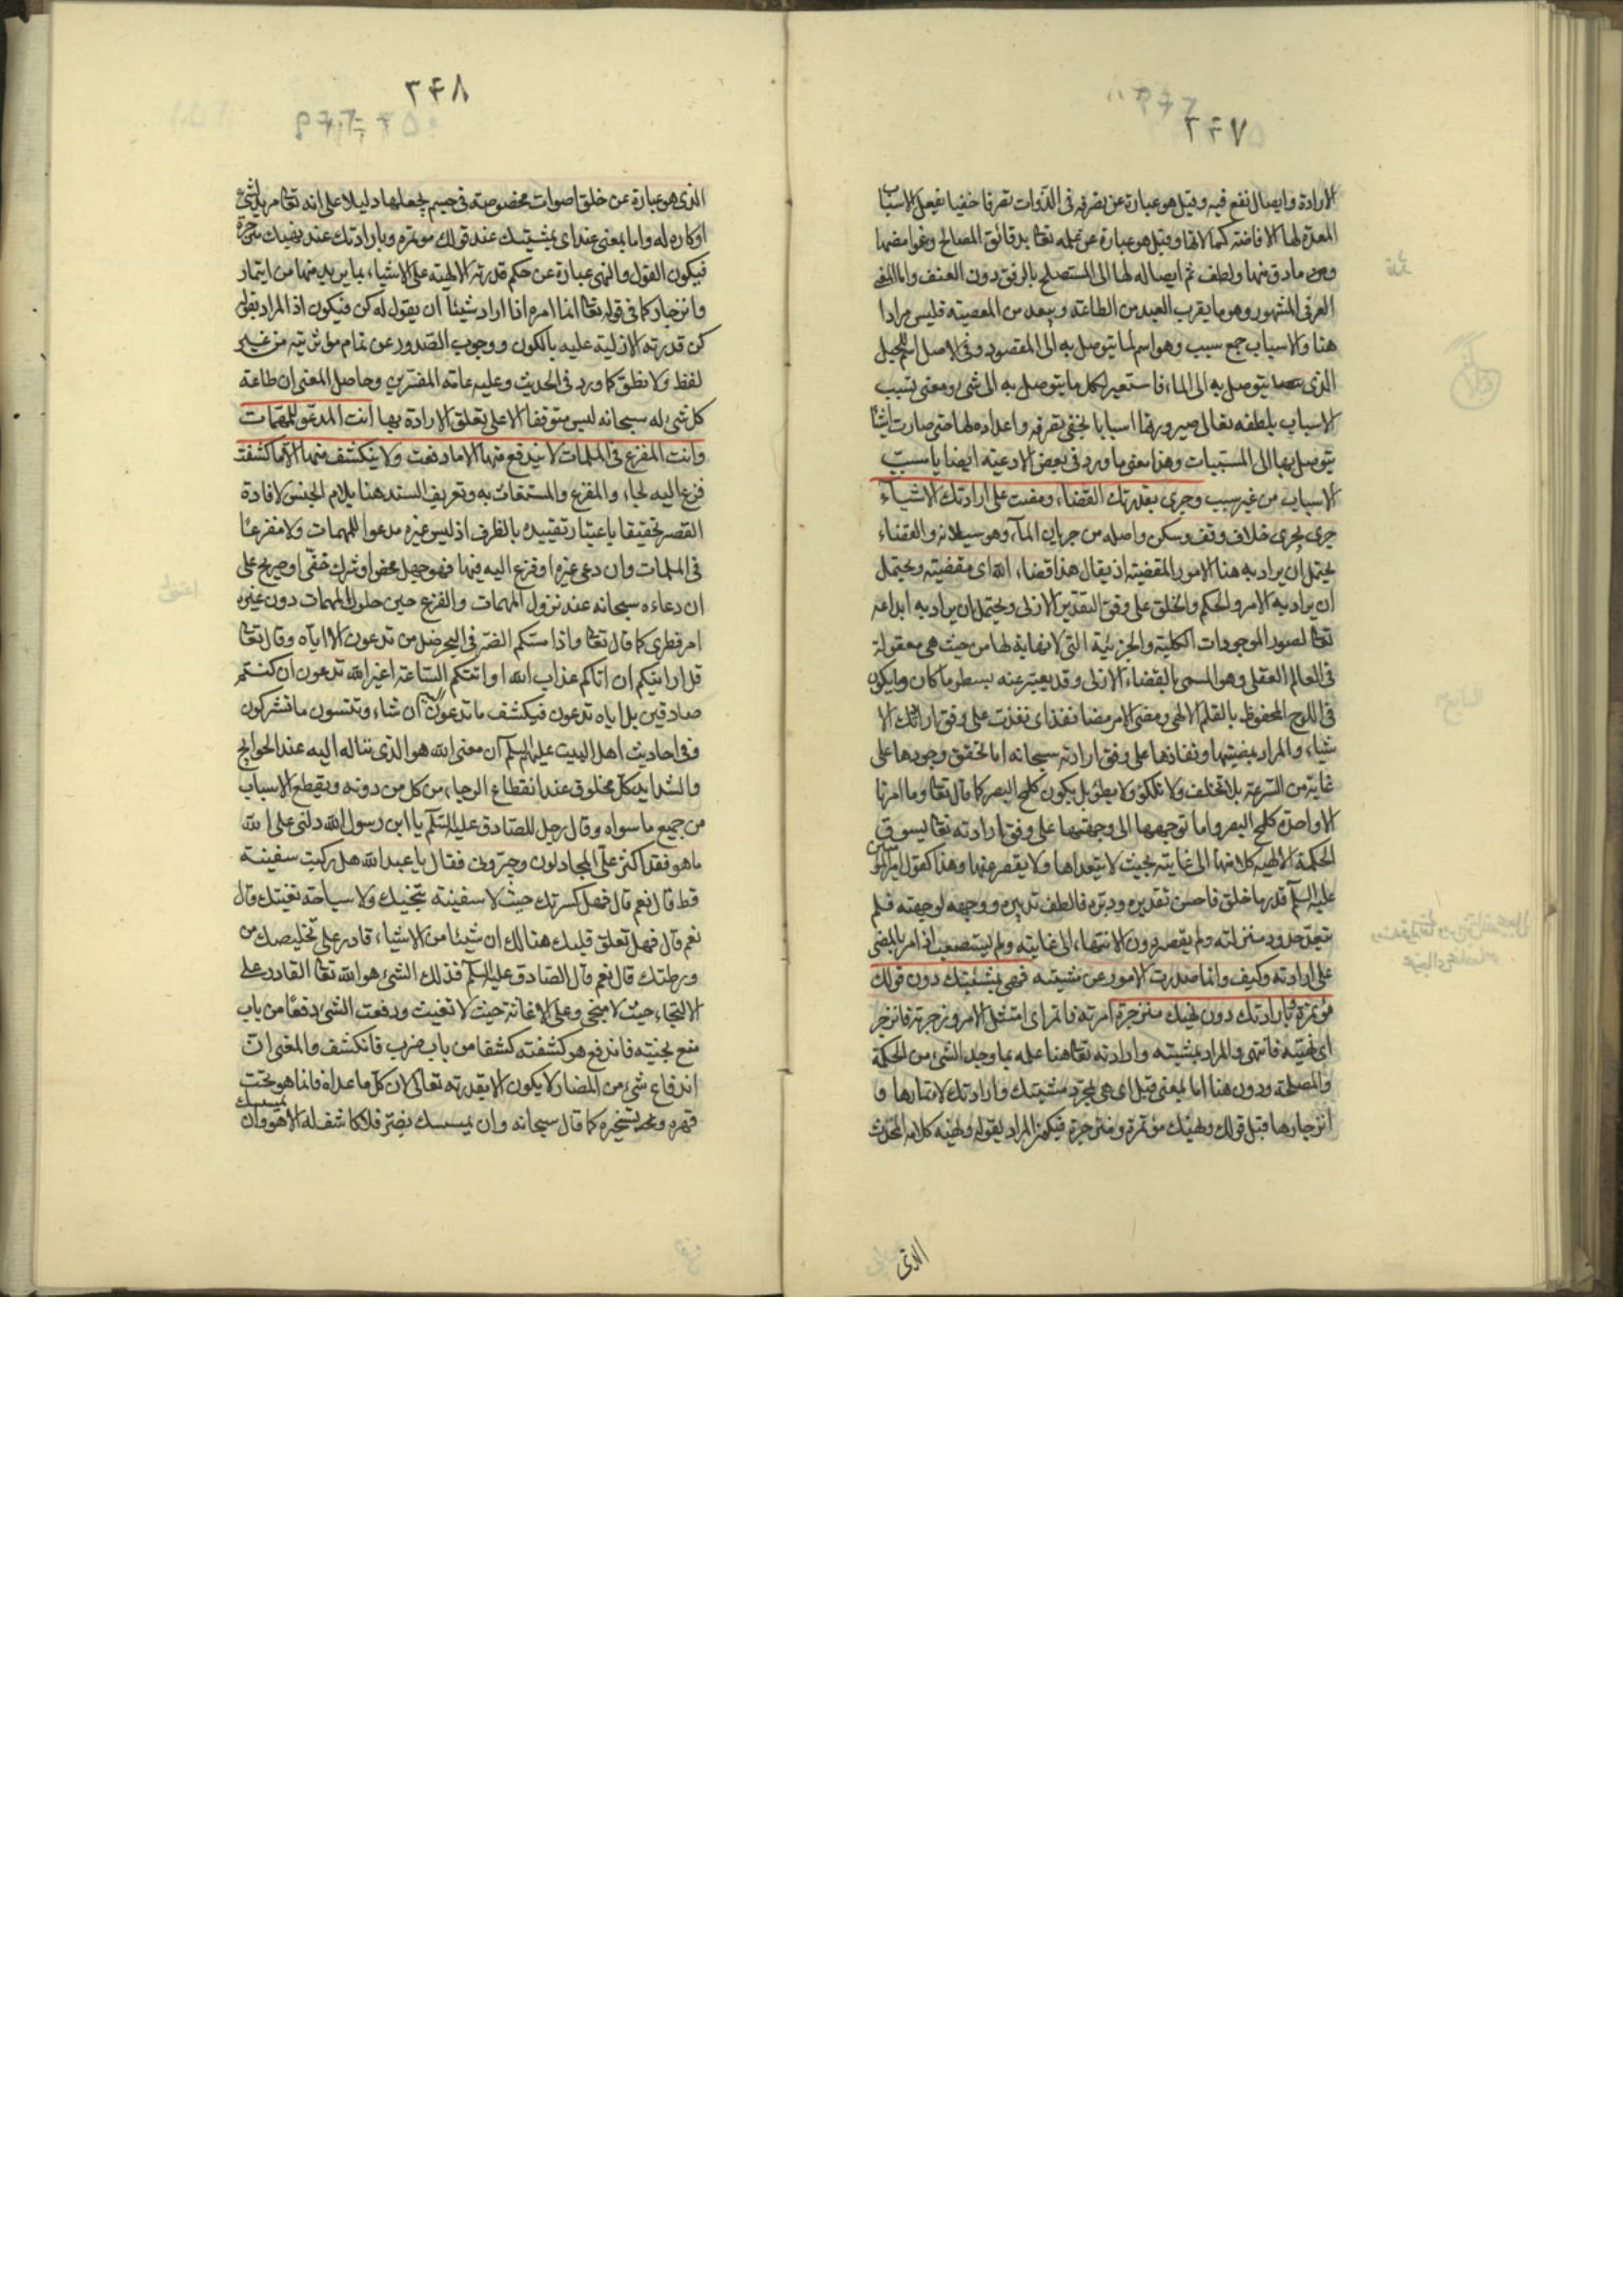 ٢٤٧
الارادة وايصال نفع فيه وقيل هو عبارة عن تصرفه فى الذوات تصرفا خفيا بفعل الاسباب
المعدة لها لافاضة كمالاتها وقيل هو عبارة عن علمه تعا بدقائق المصالح وغوامضها
وما دق منها ولطف ثم ايصاله لها الى المستصلح بالرفق دون العنف واما اللطف
العرفى المشهور وهو ما يقرب العبد من الطاعة ويبعد من المعصية فليس مرادا
هنا والاسباب جمع سبب وهو اسم لما يتوصل به الى المقصود وفى الاصل اسم للحبل
الذى يتوصل به الى الماء فاستعير لكل ما يتوصل به الى شئ ومعنى تسبب
الاسباب بلطفه تعالى صيرورتها اسبابا بخفى تصرفه واعداده لها حتى صارت اشيا
يتوصل بها الى المسببات وهذا معنى ما ورد فى بعض الادعية ايضا يا مسبب
الاسباب من غير سبب وجرى بقدرتك القضاء ومضت على ارادتك الاشياء
جرى يجرى خلاف وقف وسكن واصله من جريان الماء وهو سيلانه والقضاء
يحتمل ان يراد به هنا الامور المقضية اذ يقال هذا قضاء الله اى مقضيته ويحتمل
ان يراد به الامر والحكم والخلق على وفق التقدير الازلى ويحتمل ان يراد به ابداعه
تعا لصور الموجودات الكلية والجزئية التى لا نهاية لها من حيث هى معقولة
فى العالم العقلى وهو المسمى بالقضاء الازلى وقد يعبر عنه بسطر ما كان وما يكون
فى اللوح المحفوظ بالقلم الالهى ومضى الامر مضا نفذ اى نفذت على وفق ارادتك الا
شياء والمراد بمضيتها ونفاذها على وفق ارادته سبحانه اما تحقق وجودها على
غاية من السرعة بلا تخلف ولا تلكؤ ولا بطؤ بل يكون كلمح البصر كما قال تعا وما امرنا
الا واحدة كلمح البصر واما توجهها الى وجهتها على وفق ارادته تعا بسوق
الحكمة الالهية كلا منها الى غايته بحيث لا يتعداها ولا يقصر عنها وهذا كقول امير المؤمنين
عليه السلم قدر ما خلق فاحسن تقديره ودبره فالطف تدبيره ووجهه لوجهته فلم
يتعد حدود منزلته ولم يقصر دون الانتهاء الى غايته ولم يستصعب اذ امر بالمضى
على ارادته وكيف وانما صدرت الامور عن مشيته فهى بمشيتك دون قولك
مؤتمرة وبارادتك دون نهيك منزجرة امرته فاتمر اى امتثل الامر وزجرته فانزجر
اى نهيته فانتهى والمراد بمشيته وارادته تعا هنا علمه بما وجد الشئ من الحكمة
والمصلحة ودون هنا اما بمعنى قبل اى هى بمجرد مشيتك وارادتك لائتمارها و
انزجارها قبل قولك ونهيك مؤتمرة ومنزجرة فيكون المراد بقوله ونهيه كلامه المحدث
الذى
٢٤٨
الذى هو عبارة عن خلق اصوات مخصوصة فى جسم يجعلها دليلا على انه تعا مريد لشئ
او كاره له واما بمعنى عند اى بمشيتك عند قولك مؤتمره وبارادتك عند نهيك منزجرة
فيكون القول والنهى عبارة عن حكم قدرته الالهية على الاشياء بما يريد منها من ايتمار
وانزجار كما فى قوله تعا انما امره اذا اراد شيئا ان يقول له كن فيكون اذ المراد بقوله
كن قدرته الازلية عليه بالكون ووجوب الصدور عن تمام مؤثريته من غير
لفظ ولا نطق كما ورد فى الحديث وعليه عامة المفسرين وحاصل المعنى ان طاعة
كل شئ له سبحانه ليس متوقفا الا على تعلق الارادة بها انت المدعو للمهمات
وانت المفزع فى الملمات لا يندفع منها الا ما دفعت ولا ينكشف منها الا ما كشفت
فزع اليه لجاء والمفزع والمستغاث به وتعريف المسند هنا بلام الجنس لافادة
القصر تحقيقا باعتبار تقييده بالظرف اذ ليس غيره مدعوا للمهمات ولا مفزعا
فى الملمات وان دعى غيره او فزع اليه فيها فهو جهل محض او شرك خفى او صريح على
ان دعاءه سبحانه عند نزول المهمات والفزع حين حلول الملمات دون غيره
امر فطرى كما قال تعا واذا مسكم الضر فى البحر ضل من تدعون الا اياه وقال تعا
قل ارايتكم ان اتاكم عذاب الله او اتتكم الساعة اغير الله تدعون ان كنتم
صادقين بل اياه تدعون فيكشف ما تدعون اليه ان شاء وتنسون ما تشركون
وفى احاديث اهل البيت عليهم السلم ان معنى الله هو الذى يتاله اليه عند الحوايج
والشدايد كل مخلوق عند انقطاع الرجاء من كل من دونه وتقطع الاسباب
من جميع ما سواه وقال رجل للصادق عليه السلم يا ابن رسول الله دلنى على الله
ما هو فقد اكثر على المجادلون وحيرونى فقال يا عبد الله هل ركبت سفينة
قط قال نعم قال فهل كسرت بك حيث لا سفينة تنجيك ولا سباحة تغنيك قال
نعم قال فهل تعلق قلبك هنالك ان شيئا من الاشياء قادر على تخليصك من
ورطتك قال نعم قال الصادق عليه السلم فذلك الشئ هو الله تعا القادر على
الانجاء حيث لا منجى وعلى الاغاثة حيث لا مغيث ودفعت الشئ دفعا من باب
منع نحيته فاندفع هو كشفته كشفا من باب ضرب فانكشف والمعنى ان
اندفاع شئ من المضار لا يكون الا بقدرته تعالى لان كل ما عداه فانما هو تحت
قهره وتسخيره كما قال سبحانه وان يمسسك الله بضر فلا كاشف له الا هو وان
يمسسك